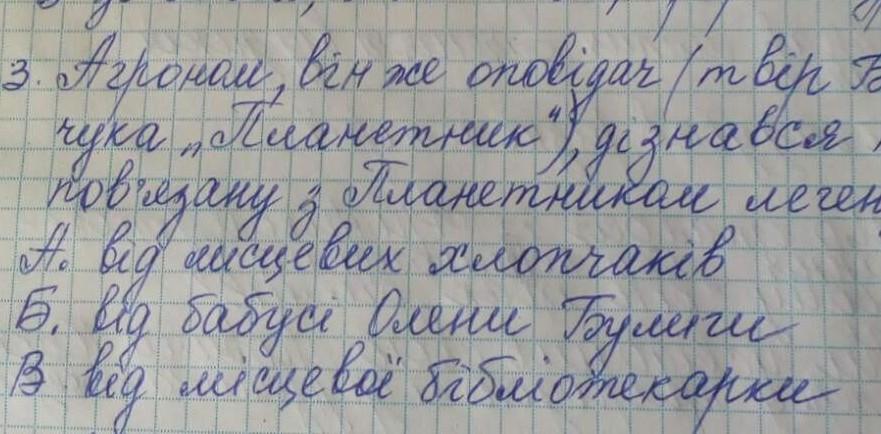 3. Агроном, він же оповідач (твір Б
чука „Планетник"), дізнався
пов'язану з Планетником леген
А. від місцевих хлопчаків
Б. від бабусі Олени Булиги
В від місцевої бібліотекарки